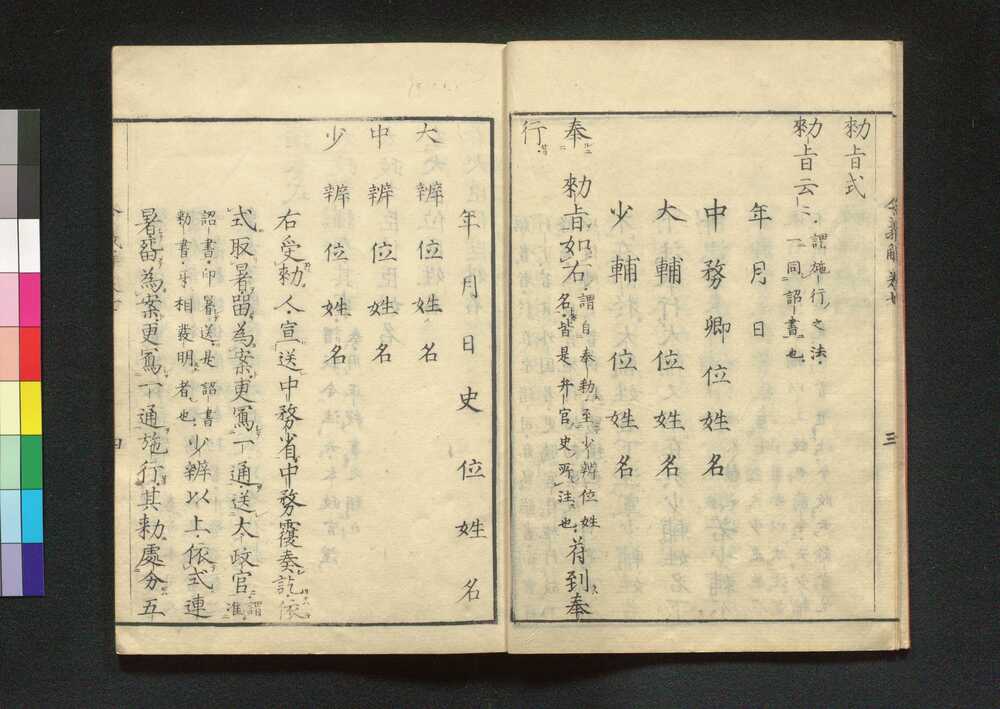 勅旨式
勅旨云云 謂施行之法一同詔書也
年月日
中務卿位姓名
大輔位姓名
少輔位姓名
奉 勅旨如右 謂自奉勅至少辨位姓名皆是弁官史所注也 符到奉
行
年月日史位姓名
大辨位姓名
中辨位姓名
少辨位姓名
右受勅人宣送中務省中務覆奏訖依
式取署留為案更寫一通送太政官 謂准
詔書印署送是詔書勅書互相發明者也 少辨以上依式連
署留為案更寫一通施行其勅處分五
三
四